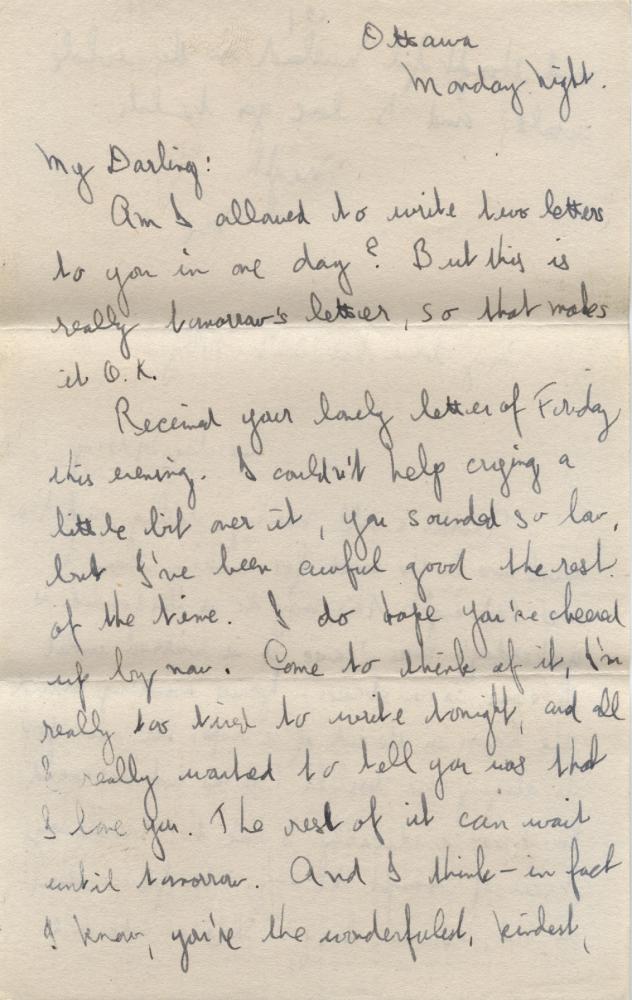 Ottawa
Monday Night.
My Darling:
Am I allowed to write two letters
to you in one day? But this is
really tomorrow's letter, so that makes
it O.K.
Received your lovely letter of Friday
this evening. I couldn't help crying a
little bit over it, you sounded so low,
but I've been awful good the rest
of the time. I do hope you're cheered
up by now. Come to think of it, I'm
really too tired to write tonight, and all
I really wanted to tell you was that
I love you. The rest of it can wait
until tomorrow. And I think - in fact
I know, you're the wonderfulest, kindest,